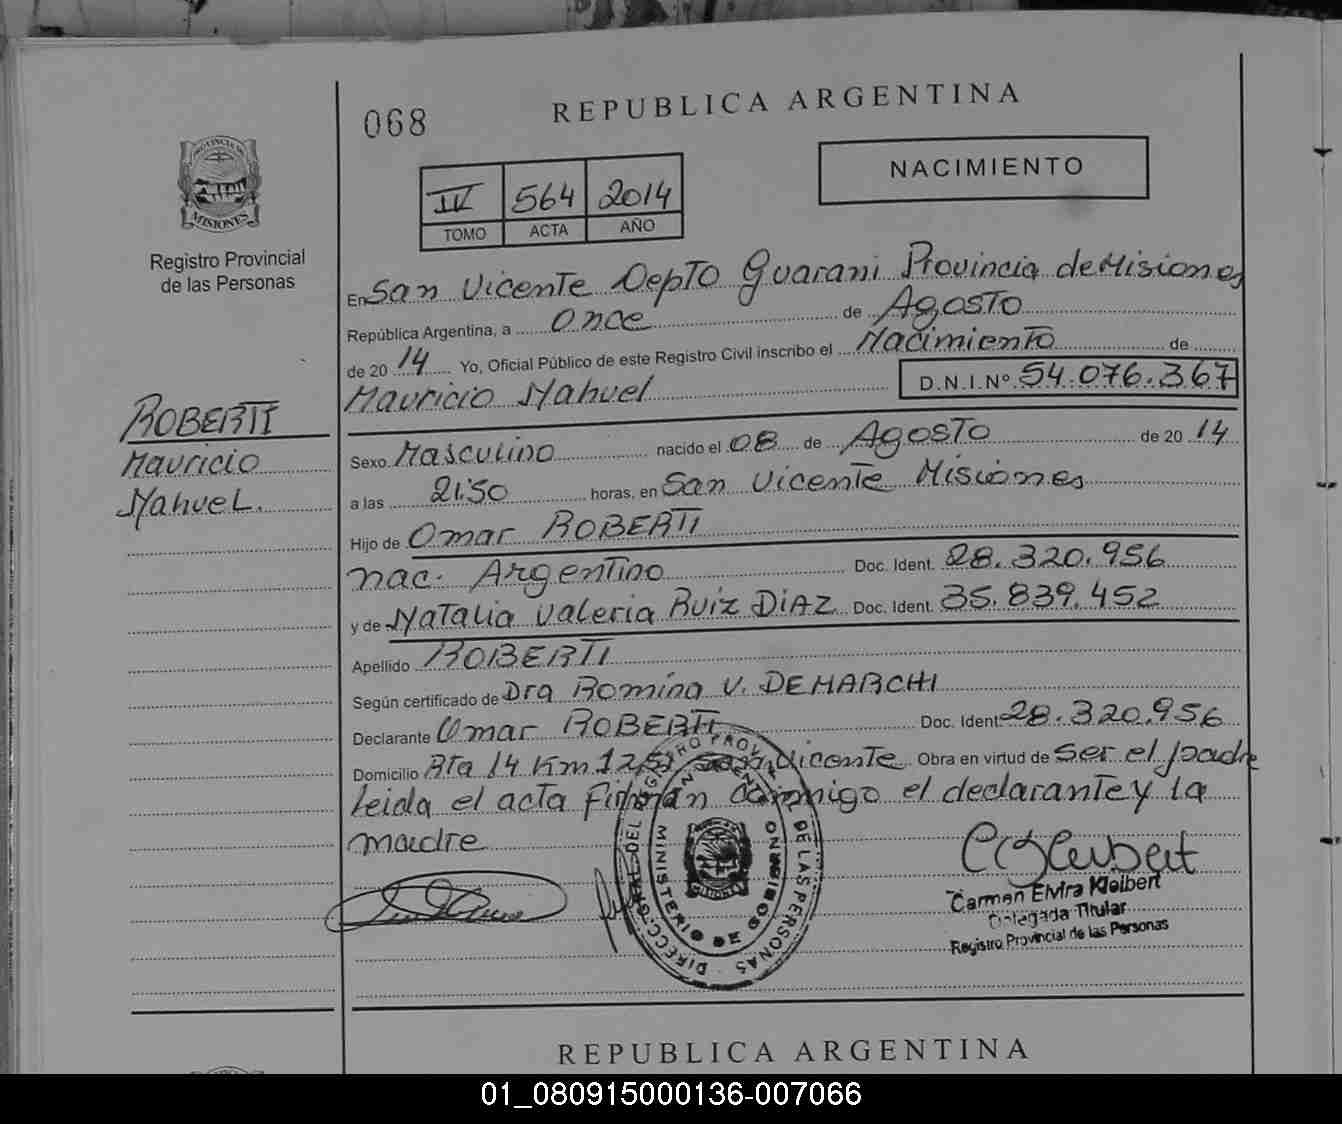 068
REPUBLICA ARGENTINA
NACIMIENTO
IV 564 2014
TOMO ACTA AÑO
PROVINCIA DE
MISIONES
Registro Provincial
de las Personas
En San Vicente Depto Guarani Provincia de Misiones
República Argentina, a Once de Agosto
de 20 14 Yo, Oficial Público de este Registro Civil inscribo el Nacimiento de
Mauricio Nahuel D.N.I.Nº 54.076.367
ROBERTI
Mauricio
Nahuel.
Sexo Masculino nacido el 08 de Agosto de 20 14
a las 21:50 horas, en San Vicente Misiones
Hijo de Omar ROBERTI
nac. Argentino Doc. Ident. 28.320.956
y de Natalia Valeria Ruiz DiAZ Doc. Ident. 35.839.452
Apellido ROBERTI
Según certificado de Dra Romina V. DEMARCHI
Declarante Omar ROBERTI Doc. Ident 28.320.956
Domicilio Rta 14 Km San Vicente Obra en virtud de ser el padre
leida el acta firman conmigo el declarante y la
madre
DIRECC. GRAL. DEL REGISTRO PROVINCIAL DE LAS PERSONAS
SAN VICENTE
MINISTERIO DE GOBIERNO
MISIONES
Carmen Elvira Kleibert
Delegada Titular
Registro Provincial de las Personas
REPUBLICA ARGENTINA
01_080915000136-007066